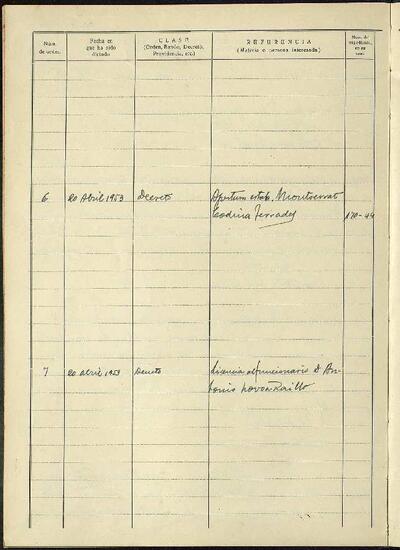 Núm. de orden
Fecha en que ha sido dictado
CLASE
(Orden, Bando, Decreto, Providencia, etc.)
REFERENCIA
(Materia o persona interesada)
Núm. de
6 20 Abril 1953 Decreto Apertura estab. Montserrat
Codina Terrades 170-44
7 20 abril 1953 Decreto Licencia al funcionario D. An-
tonio Novoa